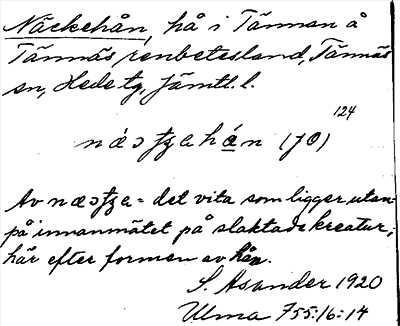 Näckehån, hå i Tännan å
Tännäs renbetesland, Tännäs
sn, Hede tg, Jämtl. l.
124
(JO)
Av = det vita som ligger utan-
på innanmätet på slaktade kreatur;
här efter formen av hån.
S. Asander 1920
Ulma 755:16:14